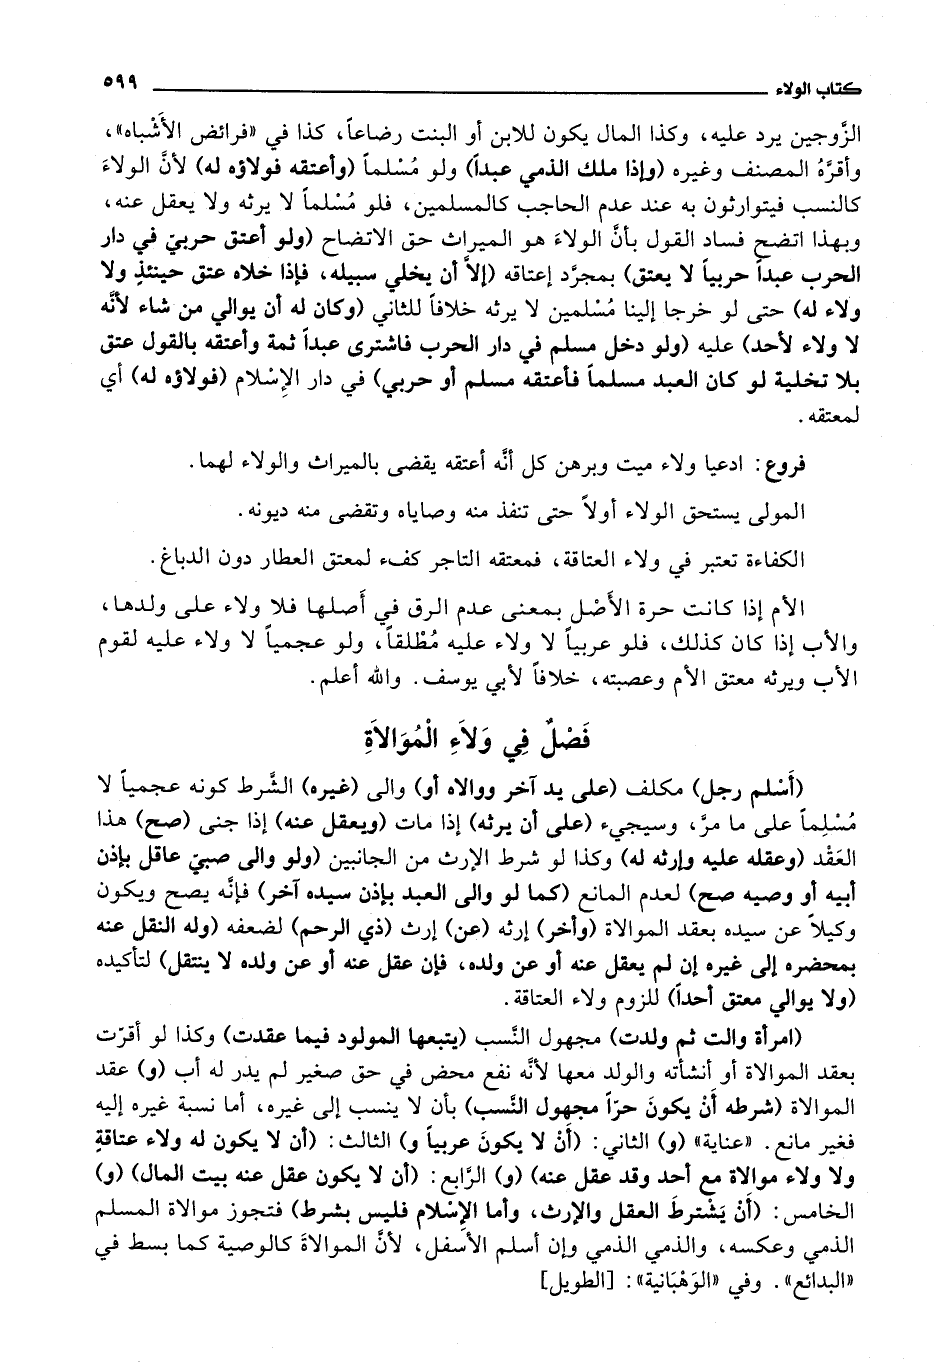 كتاب الولاء ٥٩٩
الزَّوجين يرد عليه، وكذا المال يكون للابن أو البنت رضاعاً، كذا في «فرائض الأَشْباه»،
وأقرَّهُ المصنف وغيره (وإذا ملك الذمي عبداً) ولو مُسْلماً (وأعتقه فولاؤه له) لأنَّ الولاءَ
كالنسب فيتوارثون به عند عدم الحاجب كالمسلمين، فلو مُسْلماً لا يرثه ولا يعقل عنه،
وبهذا اتضح فساد القول بأنَّ الولاءَ هو الميراث حق الاتضاح (ولو أعتق حربيّ في دار
الحرب عبداً حربياً لا يعتق) بمجرَّد إعتاقه (إلاَّ أن يخلي سبيله، فإذا خلاه عتق حينئذٍ ولا
ولاء له) حتى لو خرجا إلينا مُسْلمين لا يرثه خلافاً للثاني (وكان له أن يوالي من شاء لأنَّه
لا ولاء لأحد) عليه (ولو دخل مسلم في دار الحرب فاشترى عبداً ثمة وأعتقه بالقول عتق
بلا تخلية لو كان العبد مسلماً فأعتقه مسلم أو حربي) في دار الإِسْلام (فولاؤه له) أي
لمعتقه.
فروع: ادعيا ولاء ميت وبرهن كل أنَّه أعتقه يقضى بالميراث والولاء لهما.
المولى يستحق الولاء أولاً حتى تنفذ منه وصاياه وتقضى منه ديونه.
الكفاءة تعتبر في ولاء العتاقة، فمعتقه التاجر كفء لمعتق العطار دون الدباغ.
الأم إذا كانت حرة الأَصْل بمعنى عدم الرق في أَصلها فلا ولاء على ولدها،
والأب إذا كان كذلك، فلو عربياً لا ولاء عليه مُطْلقاً، ولو عجمياً لا ولاء عليه لقوم
الأب ويرثه معتق الأم وعصبته، خلافاً لأبي يوسف. والله أعلم.
فَصْلٌ فِي وَلاَءِ الْمُوَالاَةِ
(أَسْلم رجل) مكلف (على يد آخر ووالاه أو) والى (غيره) الشَّرط كونه عجمياً لا
مُسْلِماً على ما مرَّ، وسيجيء (على أن يرثه) إذا مات (ويعقل عنه) إذا جنى (صح) هذا
العَقْد (وعقله عليه وإرثه له) وكذا لو شرط الإرث من الجانبين (ولو والى صبيّ عاقل بإذن
أبيه أو وصيه صح) لعدم المانع (كما لو والى العبد بإذن سيده آخر) فإنَّه يصح ويكون
وكيلاً عن سيده بعقد الموالاة (وأخر) إرثه (عن) إرث (ذي الرحم) لضعفه (وله النقل عنه
بمحضره إلى غيره إن لم يعقل عنه أو عن ولده، فإن عقل عنه أو عن ولده لا ينتقل) لتأكيده
(ولا يوالي معتق أحداً) للزوم ولاء العتاقة.
(امرأة والت ثم ولدت) مجهول النَّسب (يتبعها المولود فيما عقدت) وكذا لو أقرّت
بعقد الموالاة أو أنشأته والولد معها لأنَّه نفع محض في حق صغير لم يدر له أب (و) عقد
الموالاة (شرطه أَنْ يكونَ حرّاً مجهول النَّسب) بأن لا ينسب إلى غيره، أما نسبة غيره إليه
فغير مانع. «عناية» (و) الثاني: (أَنْ لا يكونَ عربياً و) الثالث: (أن لا يكون له ولاء عتاقةٍ
ولا ولاء موالاة مع أحد وقد عقل عنه) (و) الرَّابع: (أن لا يكون عقل عنه بيت المال) (و)
الخامس: (أَنْ يَشْترطَ العقل والإرث، وأما الإِسْلام فليس بشرط) فتجوز موالاة المسلم
الذمي وعكسه، والذمي الذمي وإن أسلم الأسفل، لأنَّ الموالاةَ كالوصية كما بسط في
«البدائع». وفي «الوَهْبَانية»: [الطويل]